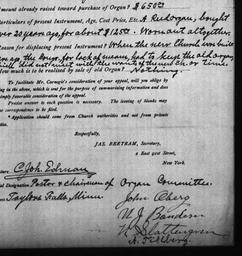 Amount already raised toward purchase of Organ? $650.00
Particulars of present Instrument, Age, Cost Price, Etc. A Reedorgan, bought
over 20 years ago, for about $125.00. Wornout altogether.
Reason for displacing present Instrument? When the new Church was built
years ago the cong. for lack of means, had to keep the old organ,
How much is to be realized by sale of old Organ? Nothing.
To facilitate Mr. Carnegie's consideration of your appeal, will you oblige by
the above, which is sent for the purpose of summarising information and does
imply favorable consideration of the appeal.
Precise answer to each question is necessary. The issuing of blanks may
correspondents.
Application should come from Church authorities and not from private
Respectfully,
JAS. BERTRAM, Secretary,
2 East 91st Street,
New York.
C. Joh. Edman
Designation Pastor & chairman of Organ Committee.
Taylors Falls, Minn. John